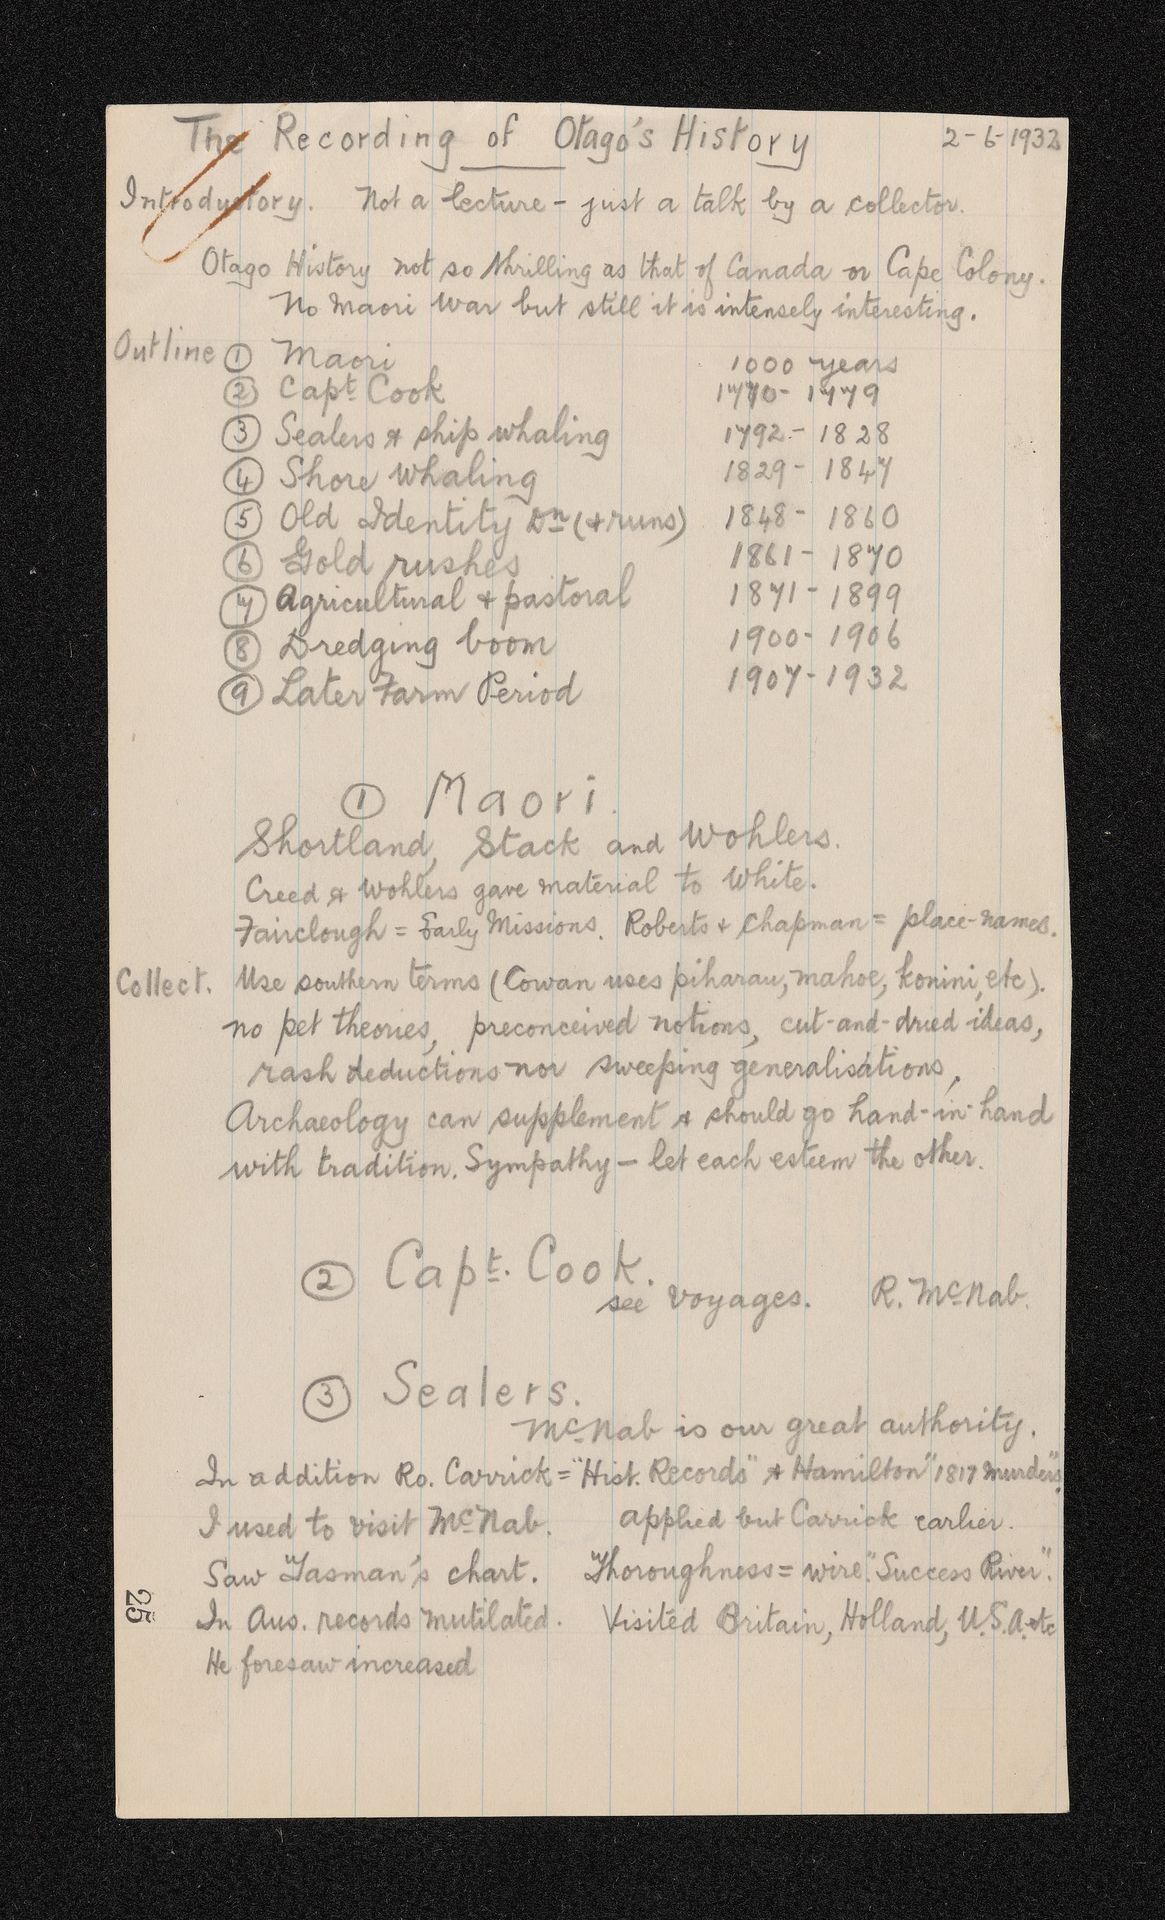 The Recording of Otago's History 2-6-1932
Introductory. Not a lecture - just a talk by a collector.
Otago History not so thrilling as that of Canada or Cape Colony.
No Maori War but still it is intensely interesting.
Outline ① Maori 1000 years
② Capt. Cook 1770- 1779
③ Sealers & ship whaling 1792- 1828
④ Shore whaling 1829- 1847
⑤ Old Identity Dn (& runs) 1848- 1860
⑥ Gold rushes 1861- 1870
⑦ Agricultural & pastoral 1871- 1899
⑧ Dredging boom 1900- 1906
⑨ Later Farm Period 1907- 1932
① Maori.
Shortland, Stack and Wohlers.
Creed & Wohlers gave material to White.
Fairclough = Early Missions. Roberts & Chapman = place-names.
Collect. Use southern terms (Cowan uses piharau, mahoe, konini, etc).
no pet theories, preconceived notions, cut-and-dried ideas,
rash deductions nor sweeping generalisations,
Archaeology can supplement & should go hand-in-hand
with tradition. Sympathy - let each esteem the other.
② Capt. Cook.
see Voyages. R. McNab.
③ Sealers.
McNab is our great authority.
In addition Ro. Carrick = "Hist. Records" & Hamilton "1817 murders".
I used to visit McNab. applied but Carrick earlier.
Saw Tasman's chart. Thoroughness = wire. "Success River".
In Aus. records mutilated. Visited Britain, Holland, U.S.A. etc
He foresaw increased
25